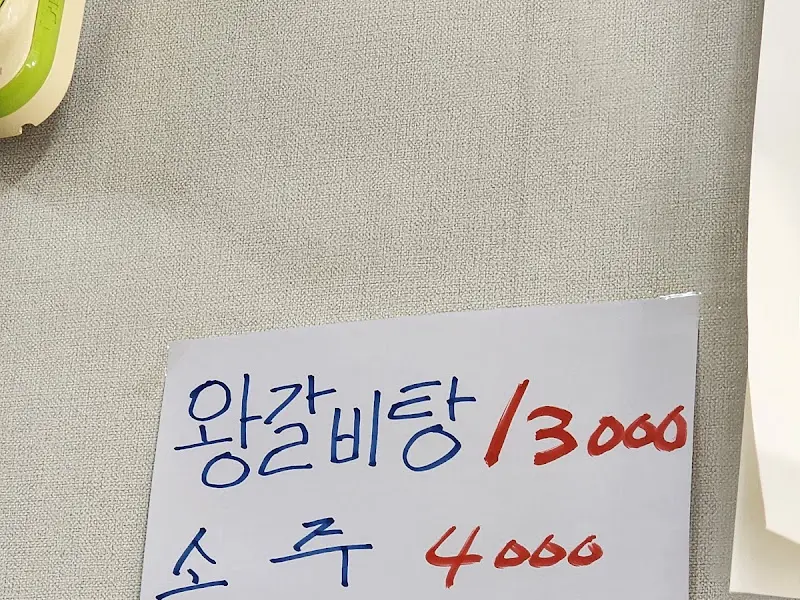 왕갈비탕 13000
소주 4000